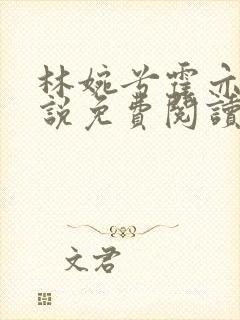 林婉兮霍亦
說免費閱讀
文君